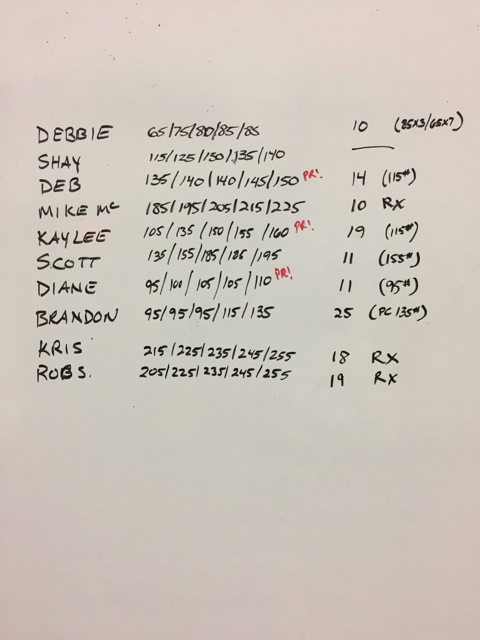 DEBBIE 65/75/80/85/85 10 (85x3/65x7)
SHAY 115/125/130/135/140 —
DEB 135/140/140/145/150 PR! 14 (115#)
MIKE Mc 185/195/205/215/225 10 RX
KAYLEE 105/135/150/155/160 PR! 19 (115#)
SCOTT 135/155/185/185/195 11 (155#)
DIANE 95/100/105/105/110 PR! 11 (95#)
BRANDON 95/95/95/115/135 25 (PC 135#)
KRIS 215/225/235/245/255 18 RX
ROB S. 205/225/235/245/255 19 RX